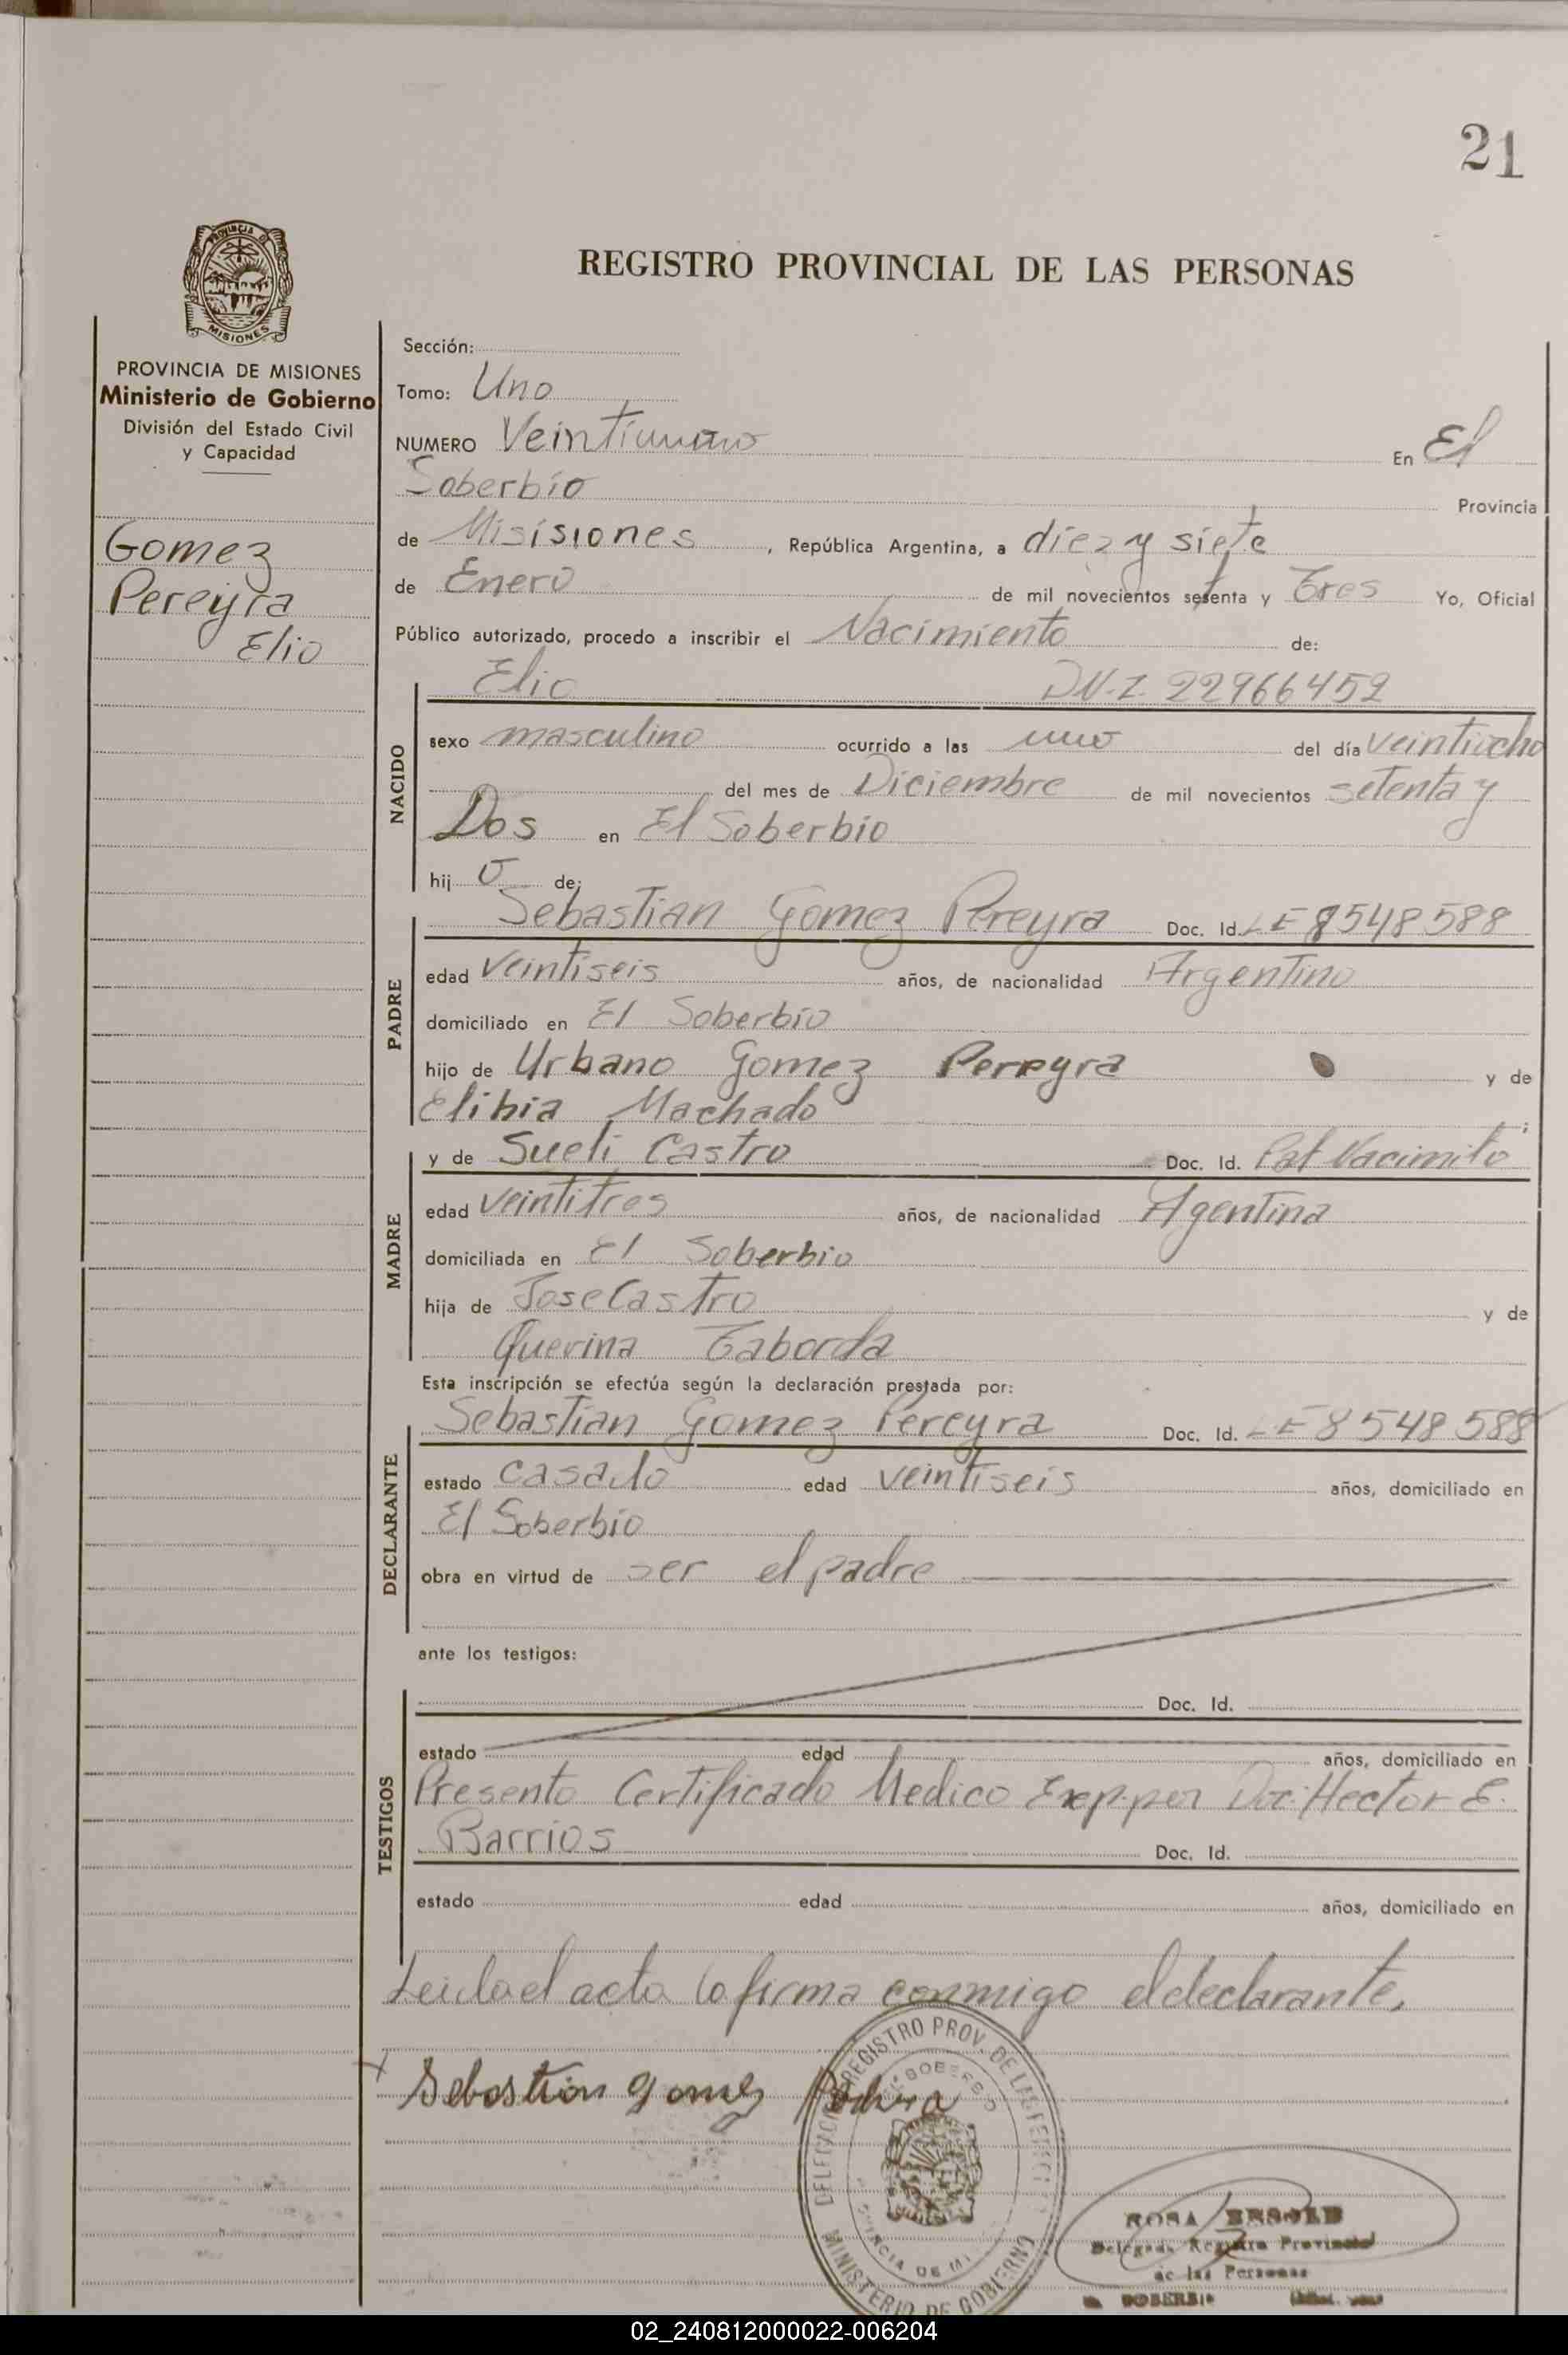 21
REGISTRO PROVINCIAL DE LAS PERSONAS
PROVINCIA DE
MISIONES
PROVINCIA DE MISIONES
Ministerio de Gobierno
División del Estado Civil
y Capacidad
Gomez
Pereyra
Elio
Sección:
Tomo: Uno
NUMERO Veintiuno En El
Soberbio Provincia
de Misisiones, República Argentina, a diez y siete
de Enero de mil novecientos setenta y Tres Yo, Oficial
Público autorizado, procedo a inscribir el Nacimiento de:
NACIDO
Elio D.N.I. 22966452
sexo masculino ocurrido a las uno del día veintiocho
del mes de Diciembre de mil novecientos setenta y
Dos en El Soberbio
hij o de:
PADRE
Sebastian Gomez Pereyra Doc. Id. LE 8548588
edad veintiseis años, de nacionalidad Argentino
domiciliado en El Soberbio
hijo de Urbano Gomez Pereyra y de
Elibia Machado ;
MADRE
y de Sueli Castro Doc. Id. Nacimito
edad veintitres años, de nacionalidad Agentina
domiciliada en El Soberbio
hija de Jose Castro y de
Querina Taborda
Esta inscripción se efectúa según la declaración prestada por:
DECLARANTE
Sebastian Gomez Pereyra Doc. Id. LE 8548588
estado casado edad veintiseis años, domiciliado en
El Soberbio
obra en virtud de ser el padre
ante los testigos:
TESTIGOS
Doc. Id.
estado edad años, domiciliado en
Presento Certificado Medico Exp. por Doc. Hector E.
Barrios Doc. Id.
estado edad años, domiciliado en
Leida el acta la firma conmigo el declarante.
Sebastian gomez
DELEGACION REGISTRO PROV. DE LAS
EL SOBERBIO
PROVINCIA DE MI
MINISTERIO DE GOBIERNO
ROSA
Delegada Registro Provincial
de las Personas
SOBERBIO
02_240812000022-006204